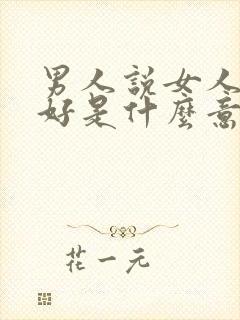 男人說女人
好是什麼意
花一元